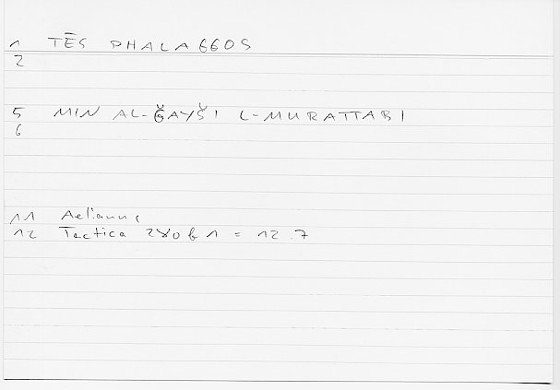 1 TĒS PHALAGGOS
2
5 MIN AL-ǦAYŠI L-MURATTABI
6
11 Aelianus
12 Tactica 280b1 = 12.7